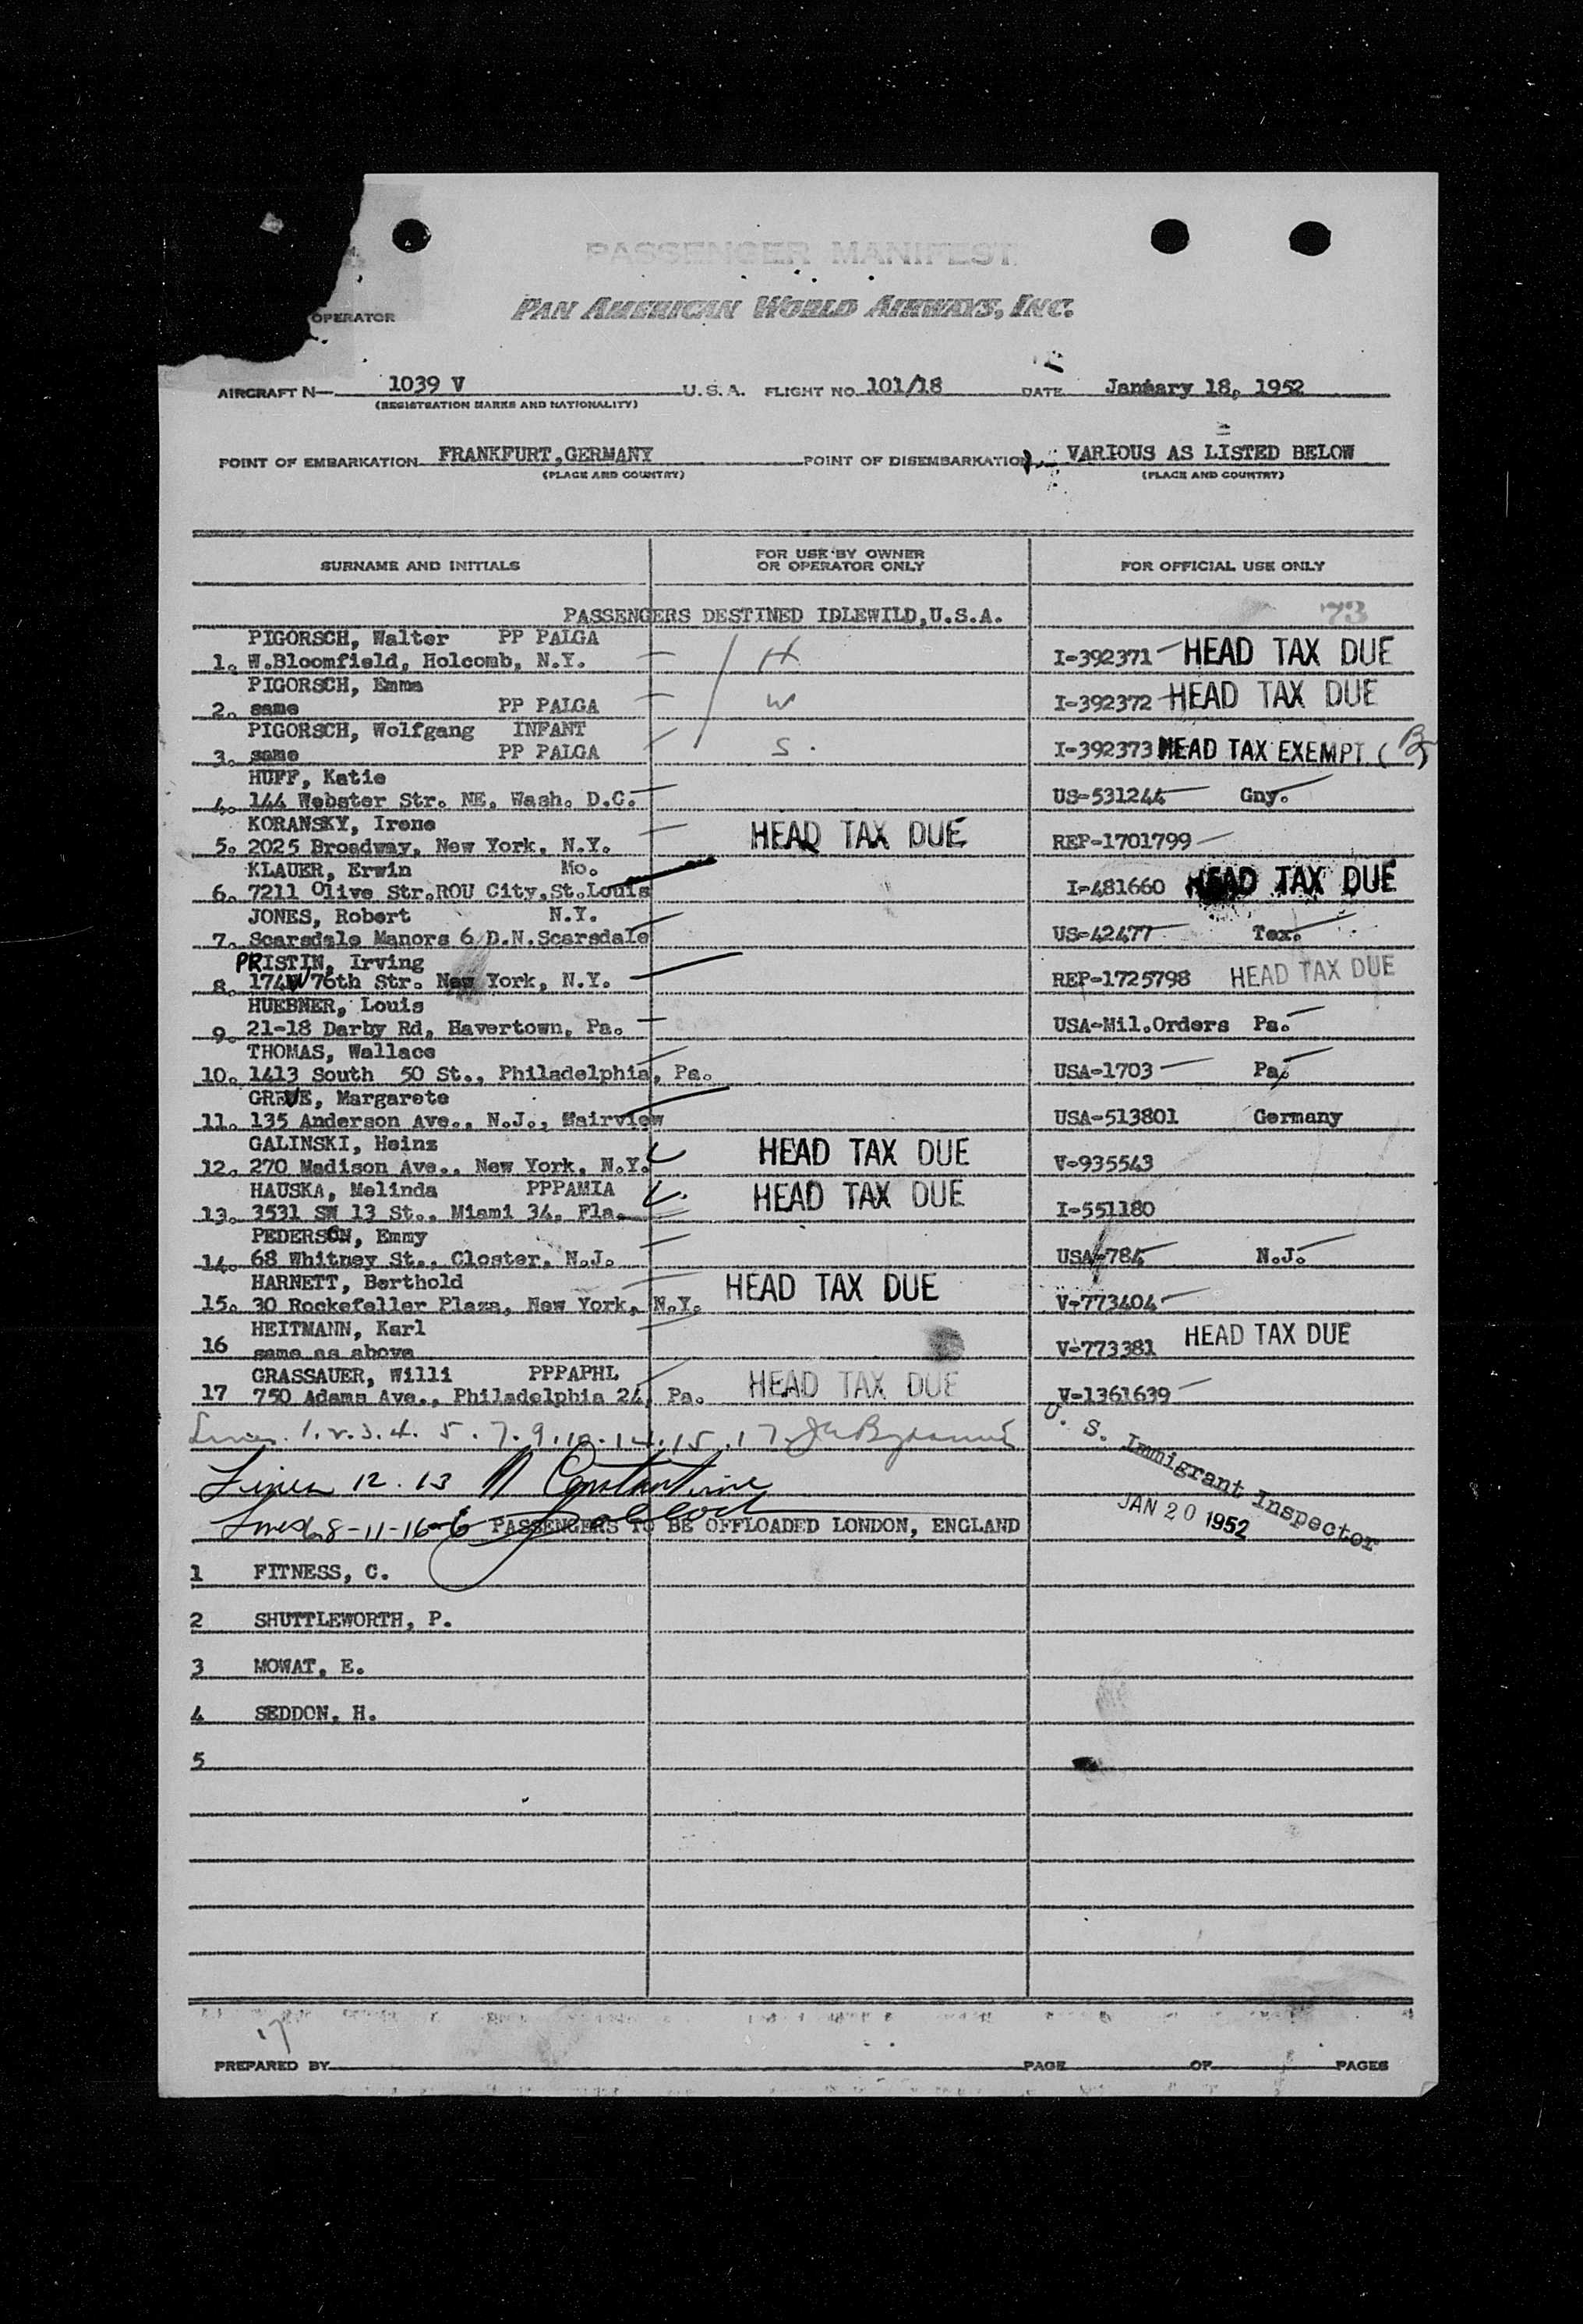 OPERATOR
PASSENGER MANIFEST
PAN AMERICAN WORLD AIRWAYS, INC.
AIRCRAFT N— 1039 V U.S.A. FLIGHT NO. 101/18 DATE January 18, 1952
(REGISTRATION MARKS AND NATIONALITY)
POINT OF EMBARKATION FRANKFURT,GERMANY POINT OF DISEMBARKATION VARIOUS AS LISTED BELOW
(PLACE AND COUNTRY) (PLACE AND COUNTRY)
SURNAME AND INITIALS FOR USE BY OWNER OR OPERATOR ONLY FOR OFFICIAL USE ONLY
PASSENGERS DESTINED IDLEWILD,U.S.A. 73
PIGORSCH, Walter PP PALGA
1. W.Bloomfield, Holcomb, N.Y. H I-392371 HEAD TAX DUE
PIGORSCH, Emma
2. same PP PALGA W I-392372 HEAD TAX DUE
PIGORSCH, Wolfgang INFANT
3. same PP PALGA S. I-392373 HEAD TAX EXEMPT
HUFF, Katie
4. 144 Webster Str. NE, Wash. D.C. US-531244 Gny.
KORANSKY, Irene
5. 2025 Broadway, New York, N.Y. HEAD TAX DUE REP-1701799
KLAUER, Erwin Mo.
6. 7211 Olive Str.ROU City,St.Louis I-481660 HEAD TAX DUE
JONES, Robert N.Y.
7. Scarsdale Manors 6 D.N.Scarsdale US-42477 Tex.
PRISTIN, Irving
8. 174W 76th Str. New York, N.Y. REP-1725798 HEAD TAX DUE
HUEBNER, Louis
9. 21-18 Darby Rd, Havertown, Pa. USA-Mil.Orders Pa.
THOMAS, Wallace
10. 1413 South 50 St., Philadelphia, Pa. USA-1703 Pa.
GREVE, Margarete
11. 135 Anderson Ave., N.J., Mairview USA-513801 Germany
GALINSKI, Heinz
12. 270 Madison Ave., New York, N.Y. HEAD TAX DUE V-935543
HAUSKA, Melinda PPPAMIA
13. 3531 SW 13 St., Miami 34, Fla. HEAD TAX DUE I-551180
PEDERSON, Emmy
14. 68 Whitney St., Closter, N.J. USA-784 N.J.
HARNETT, Berthold
15. 30 Rockefeller Plaza, New York, N.Y. HEAD TAX DUE V-773404
HEITMANN, Karl
16 same as above V-773381 HEAD TAX DUE
GRASSAUER, Willi PPPAPHL
17 750 Adams Ave., Philadelphia 24, Pa. HEAD TAX DUE V-1361639
Lines 1.2.3.4. 5.7.9.10.14.15.17
Lines 12.13 Constantine
U. S. Immigrant Inspector
JAN 20 1952
Lines 8-11-16-6 PASSENGERS TO BE OFFLOADED LONDON, ENGLAND
1 FITNESS, C.
2 SHUTTLEWORTH, P.
3 MOWAT, E.
4 SEDDON, H.
5
17
PREPARED BY PAGE OF PAGES